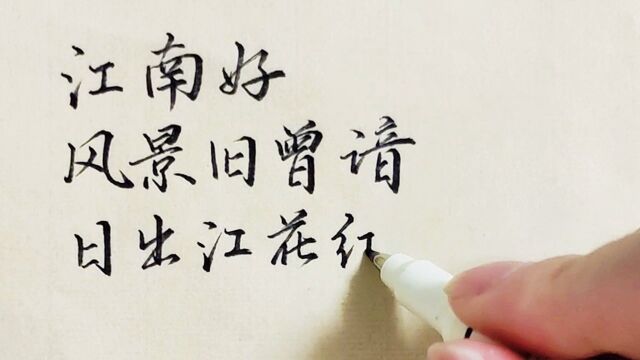 江南好
风景旧曾谙
日出江花红